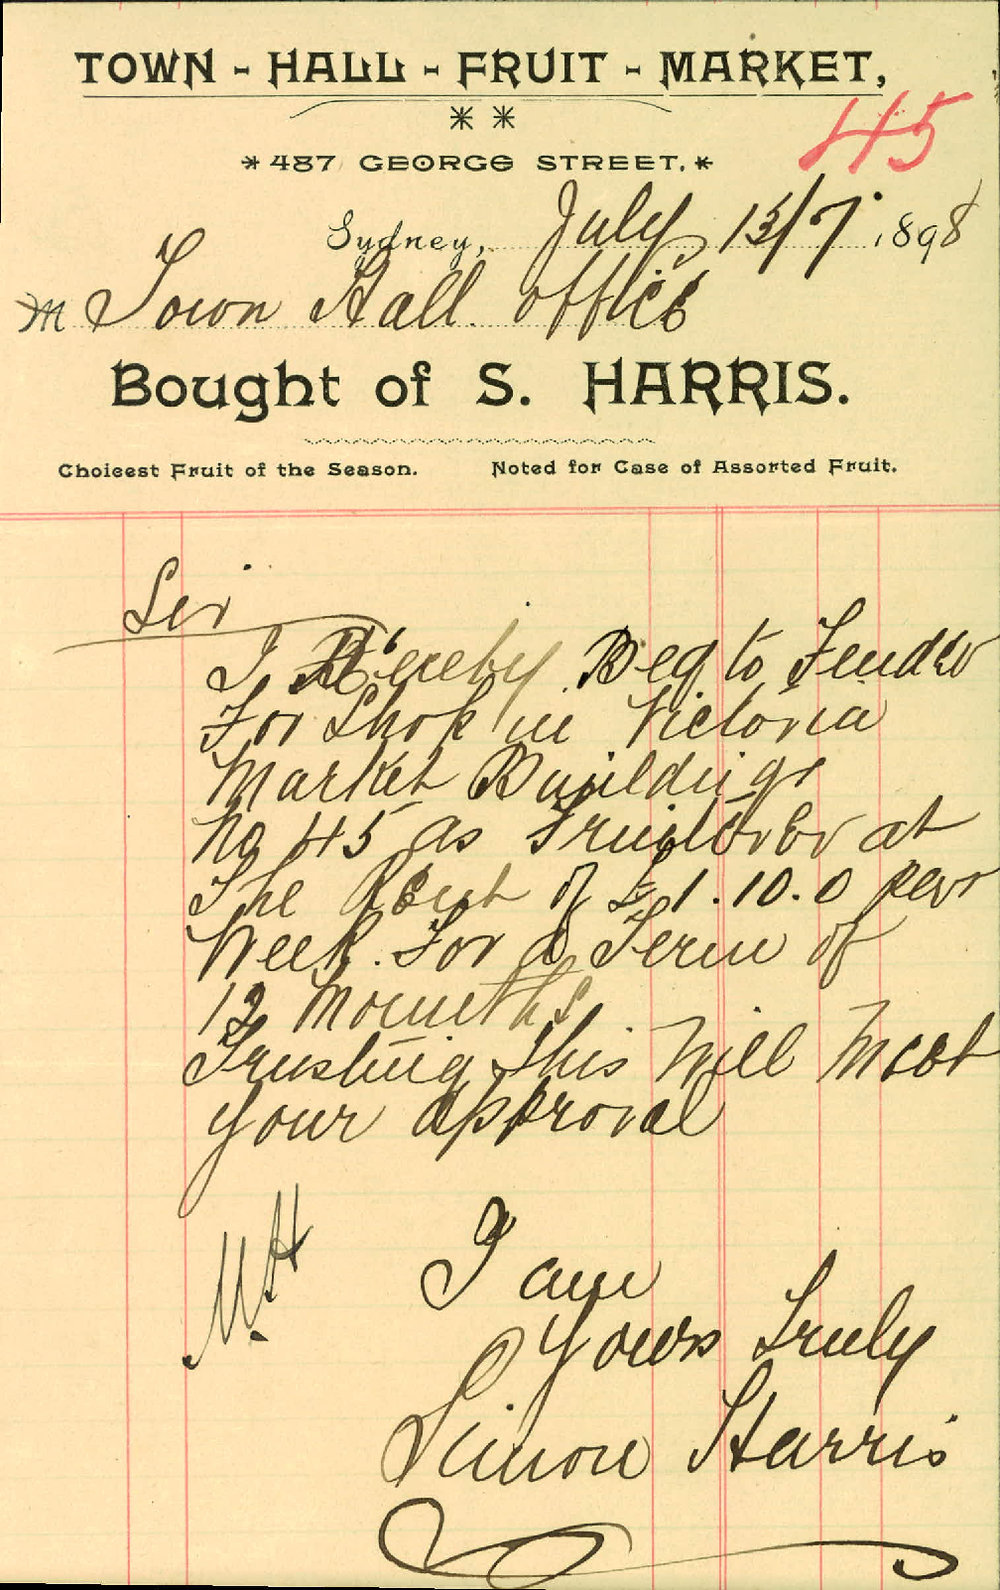 TOWN - HALL - FRUIT - MARKET,
45
* 487 GEORGE STREET. *
Sydney, July 13/7. 1898
M Town Hall office
Bought of S. HARRIS.
Choicest Fruit of the Season. Noted for Case of Assorted Fruit.
Sir
I Hereby Beg to Tender
For Shop in Victoria
Market Buildings
No 45 as Fruiterer at
The Rent of £1.10.0 per
Week. For a Term of
12 Mounths
Trusting this Will Meet
your approval
I am
Yours Truly
Simon Harris